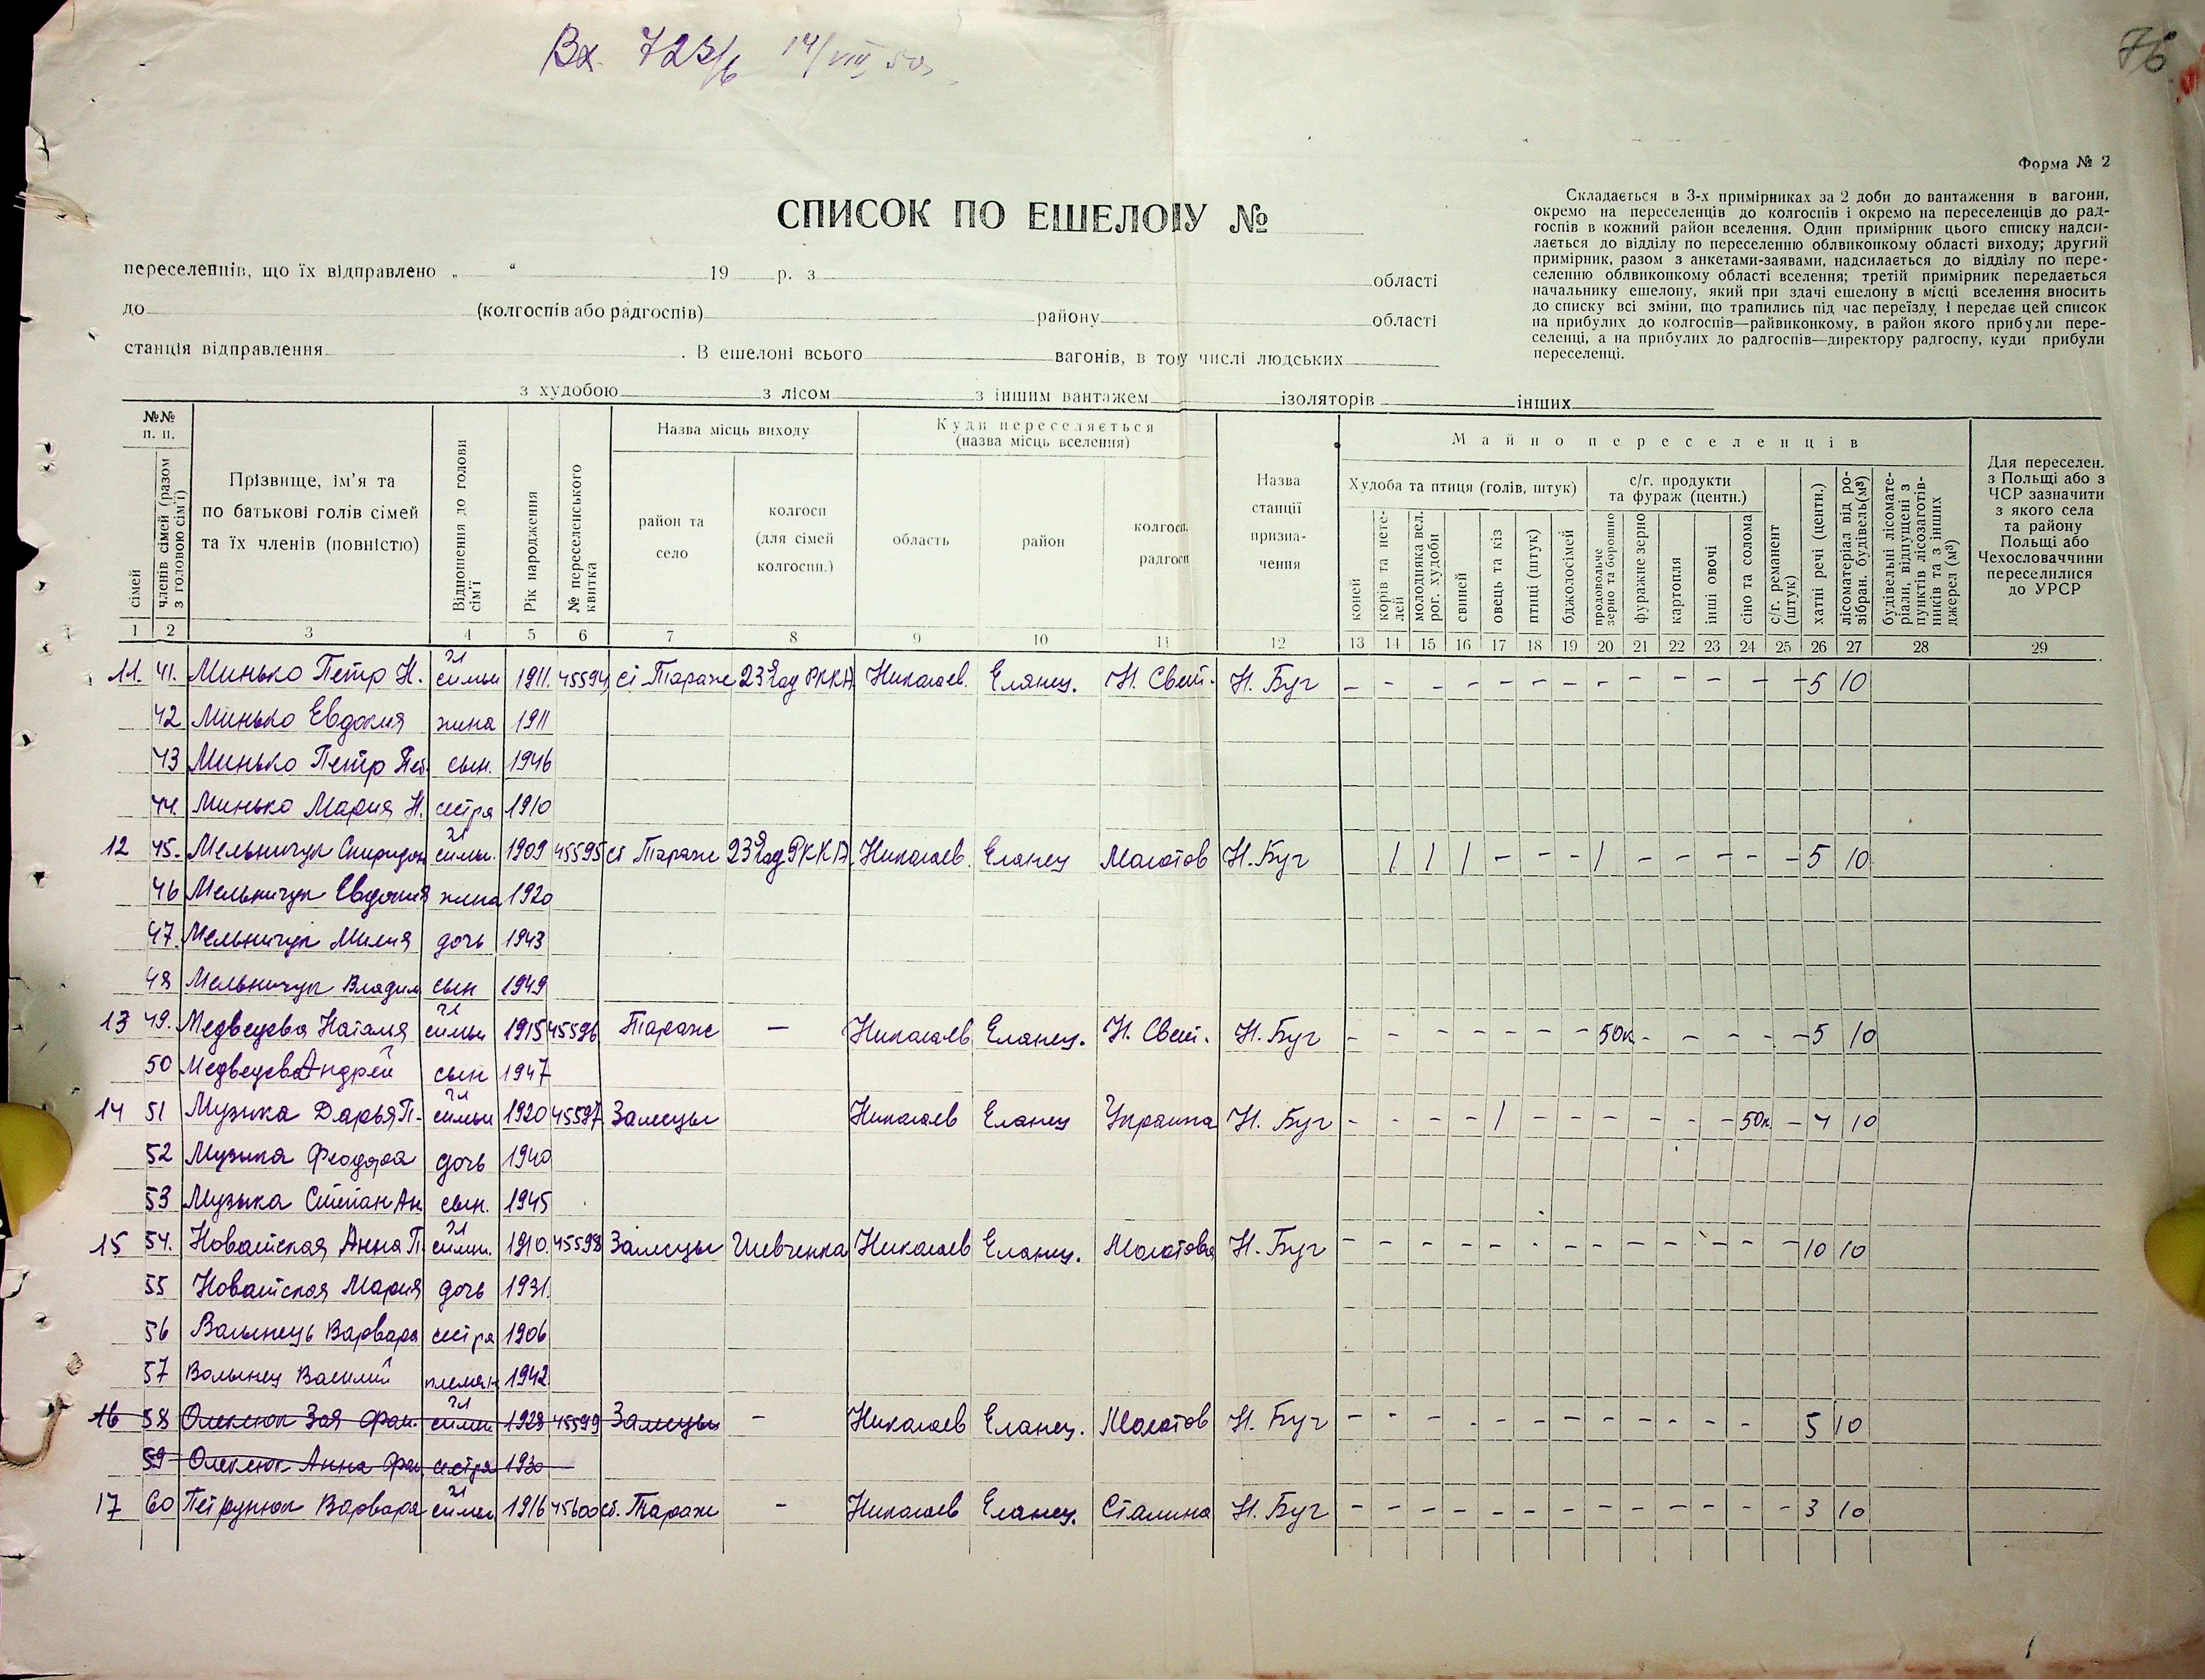 Вх. 723/6 14/VIII 50
76
Форма № 2
СПИСОК ПО ЕШЕЛОНУ №
Складається в 3-х примірниках за 2 доби до вантаження в вагони,
окремо на переселенців до колгоспів і окремо на переселенців до рад-
госпів в кожний район вселення. Один примірник цього списку надси-
лається до відділу по переселенню облвиконкому області виходу; другий
примірник, разом з анкетами-заявами, надсилається до відділу по пере-
селенню облвиконкому області вселення; третій примірник передається
начальнику ешелону, який при здачі ешелону в місці вселення вносить
до списку всі зміни, що трапились під час переїзду, і передає цей список
на прибулих до колгоспів—райвиконкому, в район якого прибули пере-
селенці, а на прибулих до радгоспів—директору радгоспу, куди прибули
переселенці.
переселенців, що їх відправлено „ “ 19 р. з області
до (колгоспів або радгоспів) району області
станція відправлення . В ешелоні всього вагонів, в тому числі людських
з худобою з лісом з іншим вантажем ізоляторів інших
№№ п. п.
сімей
членів сімей (разом з головою сім'ї)
Прізвище, ім'я та по батькові голів сімей та їх членів (повністю)
Відношення до голови сім'ї
Рік народження
№ переселенського квитка
Назва місць виходу
район та село
колгосп (для сімей колгоспн.)
Куди переселяється (назва місць вселення)
область
район
колгосп, радгосп
Назва станції призна-чення
Майно переселенців
Худоба та птиця (голів, штук)
коней
корів та нете-лей
молодняка вел. рог. худоби
свиней
овець та кіз
птиці (штук)
бджолосімей
с/г. продукти та фураж (центн.)
продовольче зерно та борошно
фуражне зерно
картопля
інші овочі
сіно та солома
с/г. реманент (штук)
хатні речі (центн.)
лісоматеріал від ро-зібран. будівель(м³)
будівельні лісомате-ріали, відпущені з пунктів лісозаготів-ників та з інших джерел (м³)
Для переселен. з Польщі або з ЧСР зазначити з якого села та району Польщі або Чехословаччини переселилися до УРСР
1 2 3 4 5 6 7 8 9 10 11 12 13 14 15 16 17 18 19 20 21 22 23 24 25 26 27 28 29
11. 41. Минько Петр Н. гл симьи 1911. 45594 Тараж 23 год РККА Николаев. Еланец. Н. Свет. Н. Буг – – – – – – – – – – – – – 5 10
42 Минько Евдокия жина 1911
43 Минько Петр Пет. сын. 1946
44. Минько Мария Н. сестра 1910
12 45. Мельничук Спиридон гл симьи. 1909 45595 Тараж 23 год РККА. Николаев. Еланец Молотов Н. Буг 1 1 1 – – – 1 – – – – – 5 10
46 Мельничук Евдокия жина 1920
47. Мельничук Милия дочь 1943
48 Мельничук Владим сын 1949
13 49. Медведева Наталия гл симьи 1915 45596 Тараж – Николаев Еланец. Н. Свет. Н. Буг – – – – – – – 50к – – – – – 5 10
50 Медведев Андрей сын 1947
14 51 Музыка Дарья П. гл симьи 1920 45597 Замецы Николаев Еланец Украина Н. Буг – – – – 1 – – – – – – 50к – 4 10
52 Музыка Феодора дочь 1940
53 Музыка Степан Ан сын. 1945
15 54. Анна П. гл симьи. 1910. 45598 Замецы Шевченка Николаев Еланец. Молотова Н. Буг – – – – – – – – – – – – – 10 10
55 Мария дочь 1931.
56 Волынець Варвара сестра 1906
57 Волынец Василий племян 1942
16 58 Олексюк Зоя Фран. гл симьи 1928 45599 Замецы – Николаев Еланец. Молотов Н. Буг – – – – – – – – – – – – 5 10
59 Олексюк Анна Фран сестра 1930
17 60 Петрунюк Варвара гл симьи 1916 45600 Тараж – Николаев Еланец. Сталина Н. Буг – – – – – – – – – – – – – 3 10